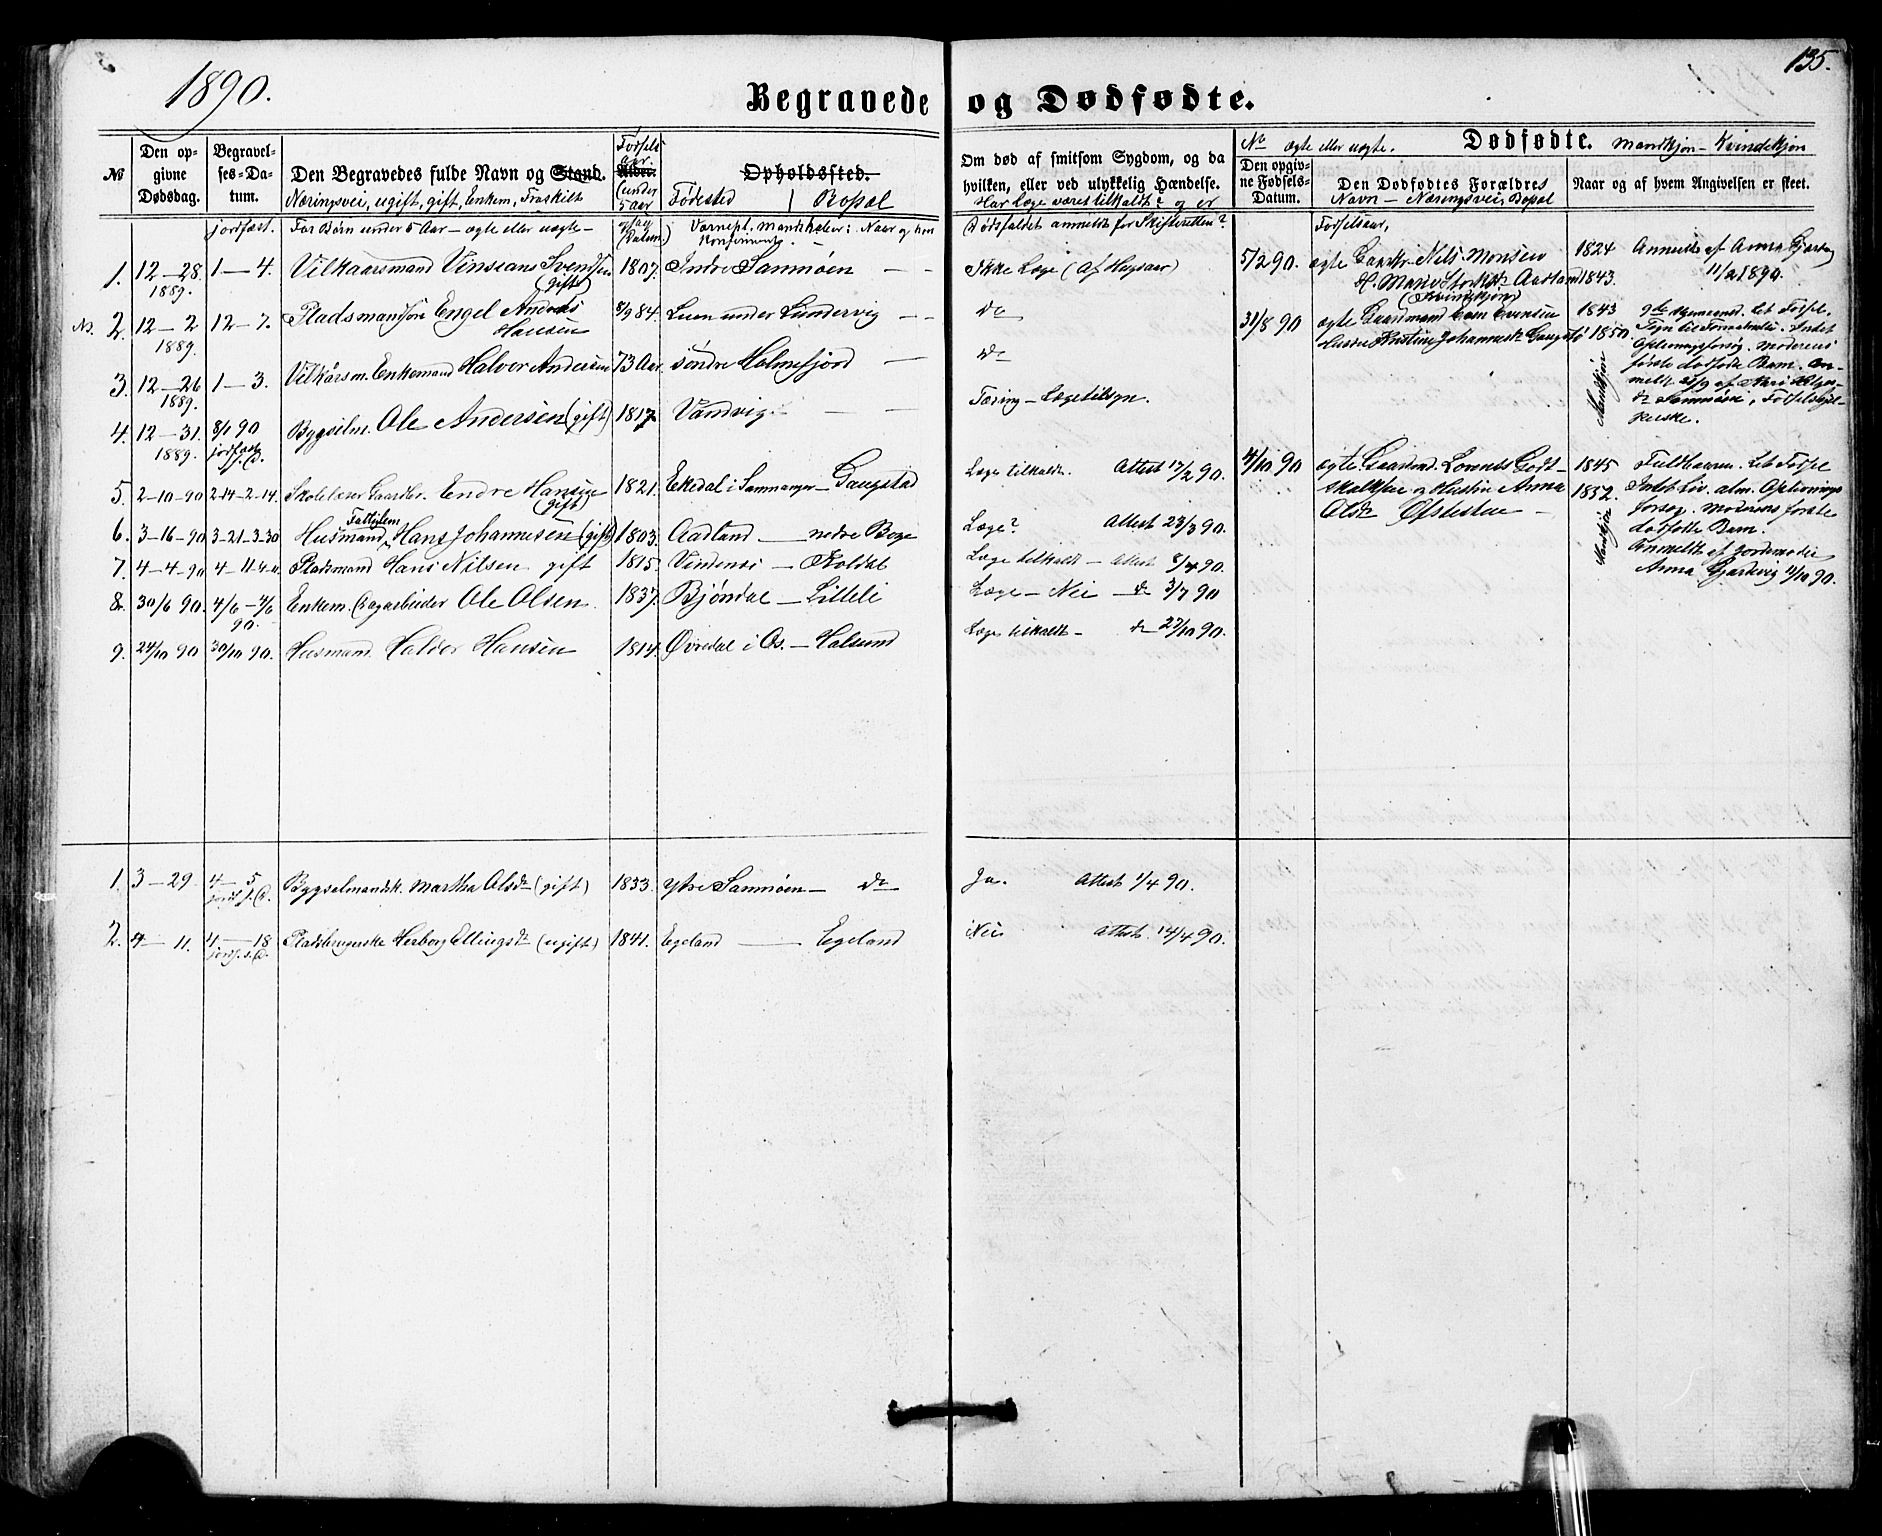 1890.
135.
Begravede og Dødfødte.
№
Den op-
givne
Dødsdag.
Begravel-
ses-Da-
tum.
Den Begravedes fulde Navn og Stand.
Næringsvei, ugift, gift, Enkem, Fraskilt
Fødsels
aar.
Alder.
(under
5 aar
Opholdssted.
Fødested | Bopæl
Om død af smitsom Sygdom, og da
hvilken, eller ved ulykkelig Hændelse.
Har Læge været tilkaldt? og er
No ægte eller uægte. Dødfødte. Mandkjøn – Kvindekjøn
Den opgiv-
ne Fødsels-
Datum.
Den Dødfødtes Forældres
Navn – Næringsvei, Bopæl
Naar og af hvem Angivelsen er skeet.
jordfæst.
For Børn under 5 Aar – ægte eller uægte –
Dødsfaldet anmeldt for Skifteretten?
Fødselsaar,
1. 12–28 1889. 1–4. Vilkaarsmand Vinsians Svendsen (gift) 1807. Indre Samnøen – –
Ikke Læge (af Hugsaar)
2. 12–2 1889. 12–7. Pladsmandssøn Engel Andreas Hansen 8/9 84. Luen under Lundervig – –
do
3. 12–26 1889. 1–3. Vilkårsm. Enkemand Halvor Andersen 73 Aar søndre Holmefjord –
do
4. 12–31. 1889. 8/1 90 jordfæst Bygselm. Ole Andersen (gift) 1817. Vandvig – –
Tæring – Lægetilsyn.
5. 2–10–90 2–14–2–14. Skolelærer Gaardbr. Endre Hansen (gift) 1821. Ekedal i Samnanger – Gaugstad
Læge tilkaldt. Attest 17/2 90.
6. 3–16–90 3–21–3–30 Husmand Fattiglem Hans Johannesen (gift) 1803. Aadland – nedre Boge
Læge? Attest 23/3 90.
7. 4–4–90 Pladsmand Hans Nilsen gift 1815. Vindenes – Koldal
Læge tilkaldt – Attest 8/4 90.
8. 30/6 90. 90. Enkem. Ole Olsen. 1837. Bjøndal – Litleli
Læge – Nei – do 3/7 90
9. 24/10 90 30/10 90. Husmand Haldor Hansen 1814. Øvredal i Os. – Halsund
Læge tilkaldt – do 27/10 90.
5/2 90. ægte Gaardbr. Nils Monsen 1824
H. Marie Aadland 1843.
(Kvindekjøn)
Anmeldt af Anna
11/2 1890.
31/8 90 ægte Gaardmand Evensen 1843
Hustru Kristine Johannesd. Gaugstø 1850.
Mandkjøn
Let Fødsel.
Oplivningsforsøg. Moderens
første dødfødte Barn. An-
meldt af
Samnøen, Fødselshjel-
perske.
4/10 90 ægte Gaardmd. Lorents Gott-
skalksen og Hustru Anna
Olsdr
1845
1852.
Mandkjøn
Fuldbaaren. Let Fødsel
Intet Liv. alm. Oplivnings
forsøg. Moderens første
dødfødte Barn.
Anmeldt af Jordemoder
Anna Gjerdevig 11/10 90.
1. 3–29. 4–5 Bygselmandsk. Martha Olsdr (gift) 1833. ytre Samnøen – do
Ja. Attest 1/4 90.
2. 4–11. 4–18 Pladsbrugerske Herborg Ellingsdr (ugift) 1841. Egeland – Egeland
Nei Attest. 14/4 90.